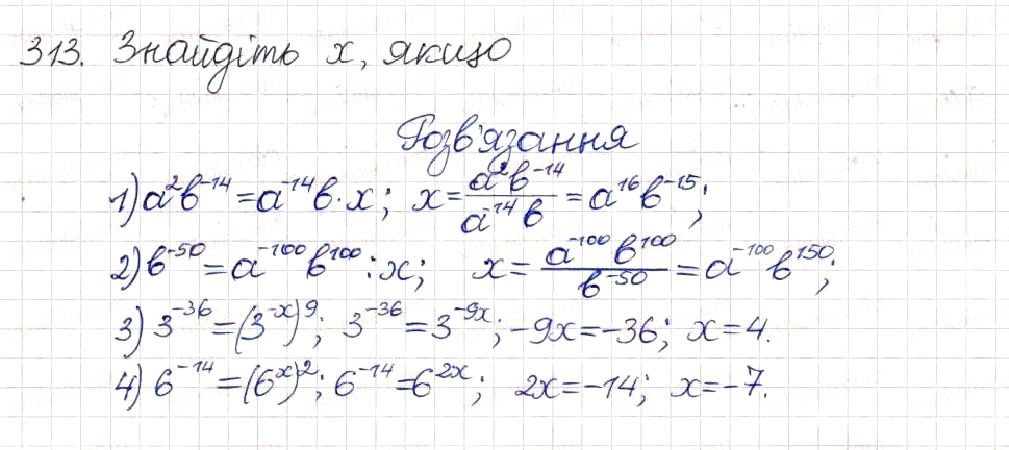 313. Знайдіть x, якщо
Розв'язання
1) a²b⁻¹⁴ = a⁻¹⁴b · x; x = a²b⁻¹⁴ / a⁻¹⁴b = a¹⁶b⁻¹⁵;
2) b⁻⁵⁰ = a⁻¹⁰⁰b¹⁰⁰ : x; x = a⁻¹⁰⁰b¹⁰⁰ / b⁻⁵⁰ = a⁻¹⁰⁰b¹⁵⁰;
3) 3⁻³⁶ = (3⁻ˣ)⁹; 3⁻³⁶ = 3⁻⁹ˣ; -9x = -36; x = 4.
4) 6⁻¹⁴ = (6ˣ)²; 6⁻¹⁴ = 6²ˣ; 2x = -14; x = -7.